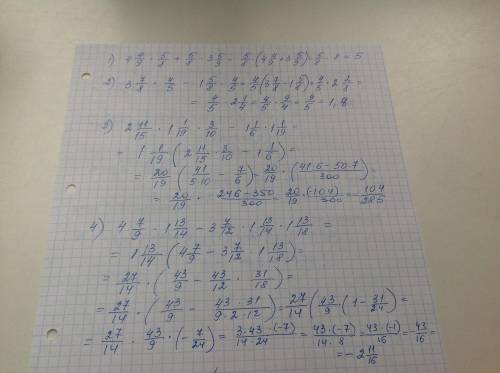 1) 4 4/9 · 5/8 + 5/8 · 3 5/9 = 5/8 (4 4/9 + 3 5/9) = 5/8 · 8 = 5
2) 3 7/8 · 4/5 - 1 5/8 · 4/5 = 4/5 (3 7/8 - 1 5/8) = 4/5 · 2 2/8 =
= 4/5 · 2 1/4 = 4/5 · 9/4 = 9/5 = 1,8
3) 2 11/15 · 1 1/19 · 3/10 - 1 1/6 · 1 1/19 =
= 1 1/19 (2 11/15 · 3/10 - 1 1/6) =
= 20/19 (41/5·10 - 7/6) = 20/19 · (41·6-50·7)/300 =
= 20/19 · 246-350/300 = 20/19 · (-104)/300 = 104/285
4) 4 7/9 · 1 13/14 - 3 7/12 · 1 13/14 · 1 13/18 =
= 1 13/14 (4 7/9 - 3 7/12 · 1 13/18) =
= 27/14 · (43/9 - 43/12 · 31/18) =
= 27/14 · (43/9 - 43·31/9·2·12) = 27/14 (43/9 · (1 - 31/24) =
= 27/14 · 43/9 · (-7/24) = 3·43·(-7)/14·24 = 43·(-7)/14·8 = 43·(-1)/16 = -43/16 =
= -2 11/16